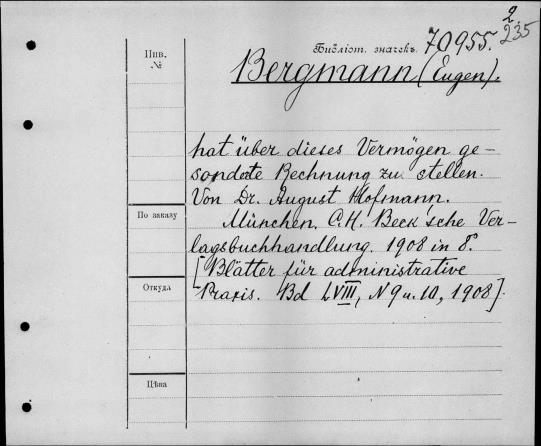 2
235
Библіот. значекъ. 70955.
Инв.
№
Bergmann (Eugen).
hat über dieses Vermögen ge-
sonderte Rechnung zu stellen.
Von Dr. August Hofmann.
По заказу
München. C.H. Beck'sche Ver-
lagsbuchhandlung. 1908 in 8°
[Blätter für administrative
Откуда
Praxis. Bd LVIII, N 9 u. 10, 1908].
Цѣна